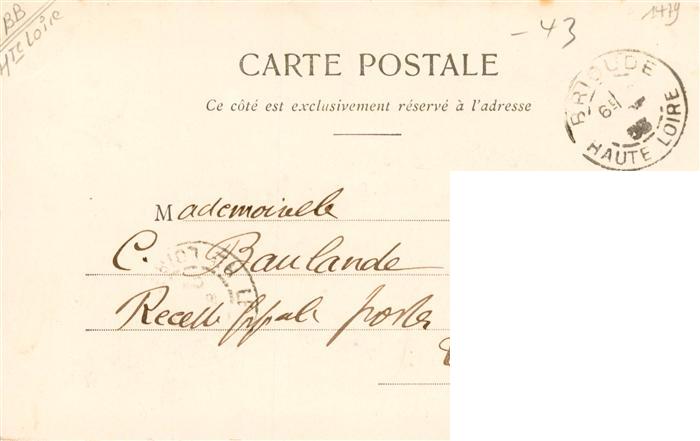 BB
Hte Loire
-43
1479
CARTE POSTALE
Ce côté est exclusivement réservé à l'adresse
BRIOUDE
HAUTE LOIRE
Mademoiselle
C. Baulande
Recette ppale postes